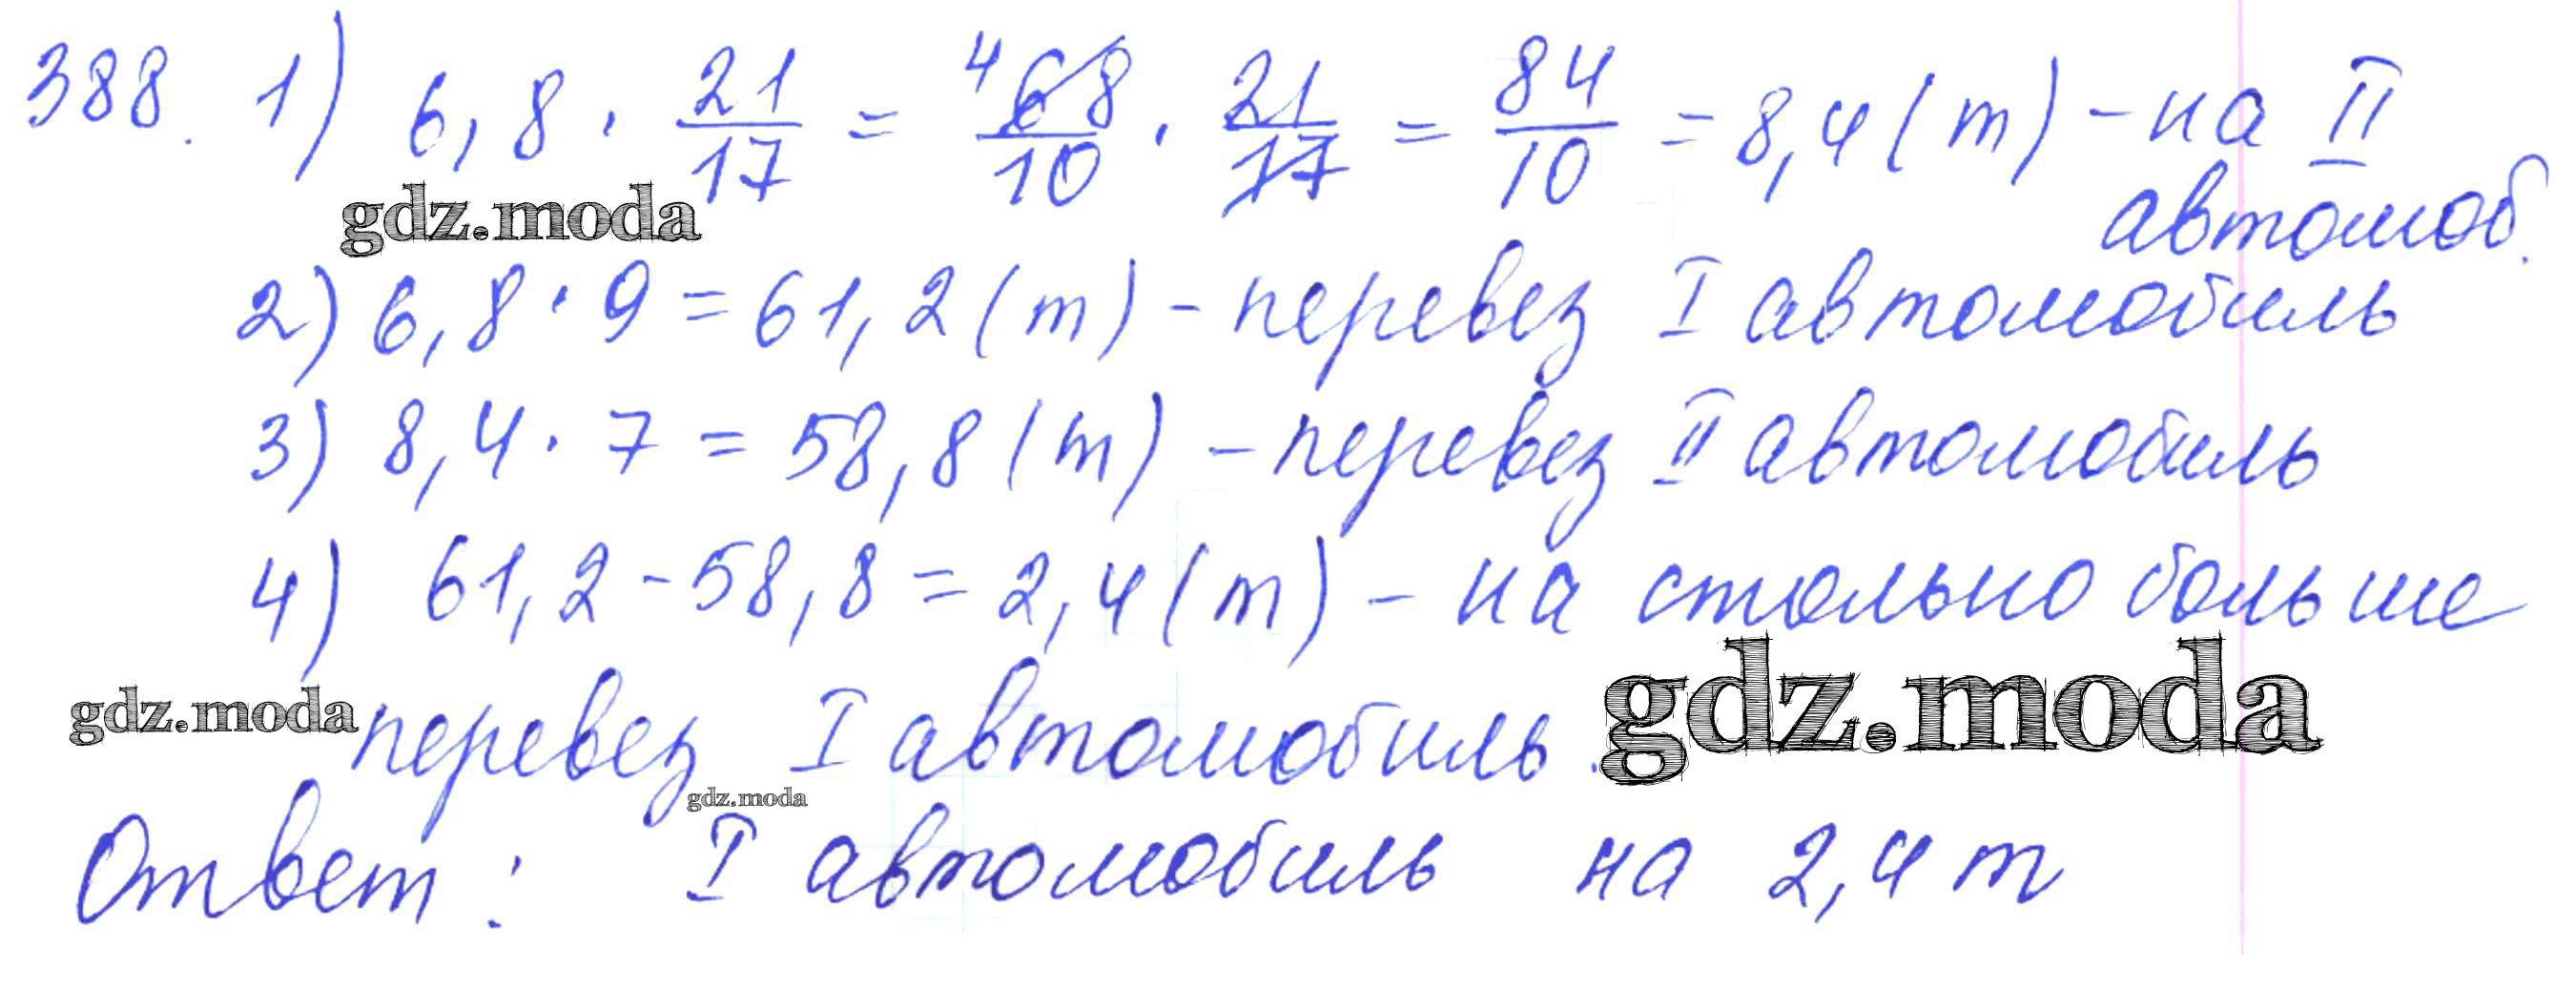 388. 1) 6,8 · 21/17 = ⁴68/10 · 21/17 = 84/10 = 8,4 (т) - на II
автомоб.
gdz.moda
2) 6,8 · 9 = 61,2 (т) - перевез I автомобиль
3) 8,4 · 7 = 58,8 (т) - перевез II автомобиль
4) 61,2 - 58,8 = 2,4 (т) - на столько больше
gdz.moda
перевез I автомобиль.
gdz.moda
gdz.moda
Ответ: I автомобиль на 2,4 т